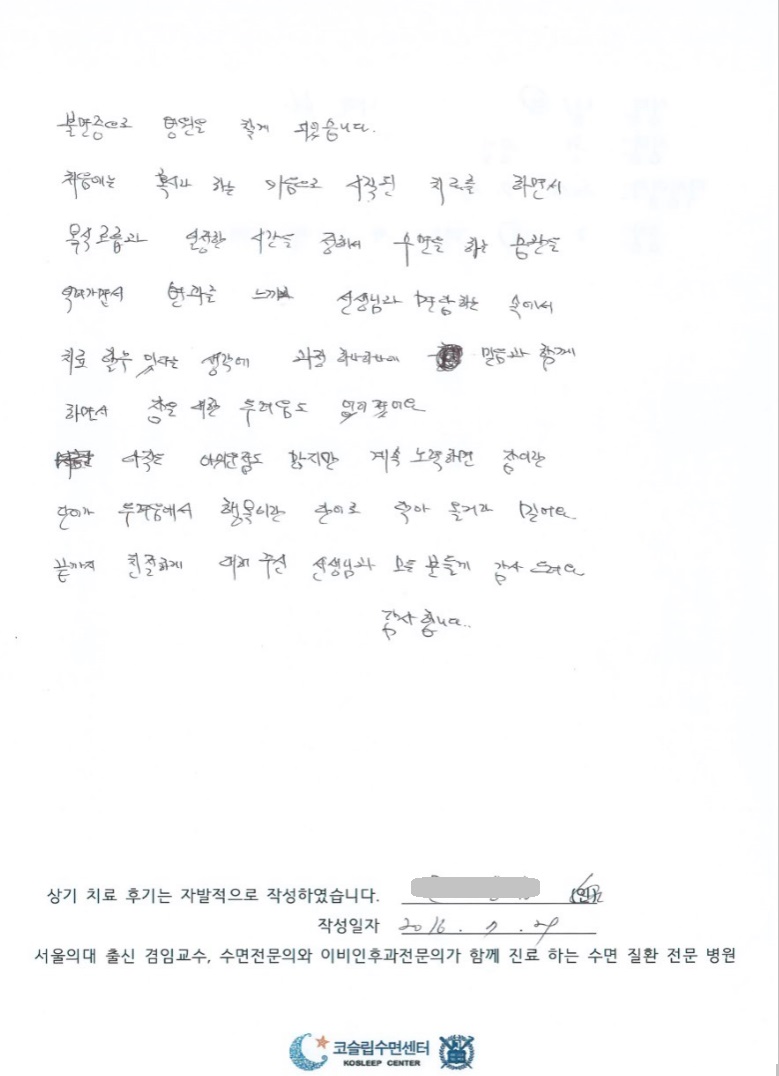 불면증으로 병원을 찾게 되었습니다.
처음에는 혹시나 하는 마음으로 시작된 치료를 하면서
복식호흡과 일정한 시간을 정해서 수면을 하는 습관을
선생님과 면담하는 속에서
치료 할수 있다는 생각에 과정 하나하나에 말씀과 함께
하면서 잠을 대한 두려움도 없어졌어요
아직은 아쉬운점도 많지만 계속 노력하면 잠이란
단어가 두려움에서 행복이란 단어로 돌아 올거라 믿어요
끝까지 친절하게 대해 주신 선생님과 모든 분들께 감사 드려요
감사합니다..
상기 치료 후기는 자발적으로 작성하였습니다. (인)
작성일자 2016. 7. 29
서울의대 출신 겸임교수, 수면전문의와 이비인후과전문의가 함께 진료 하는 수면 질환 전문 병원
코슬립수면센터
KOSLEEP CENTER